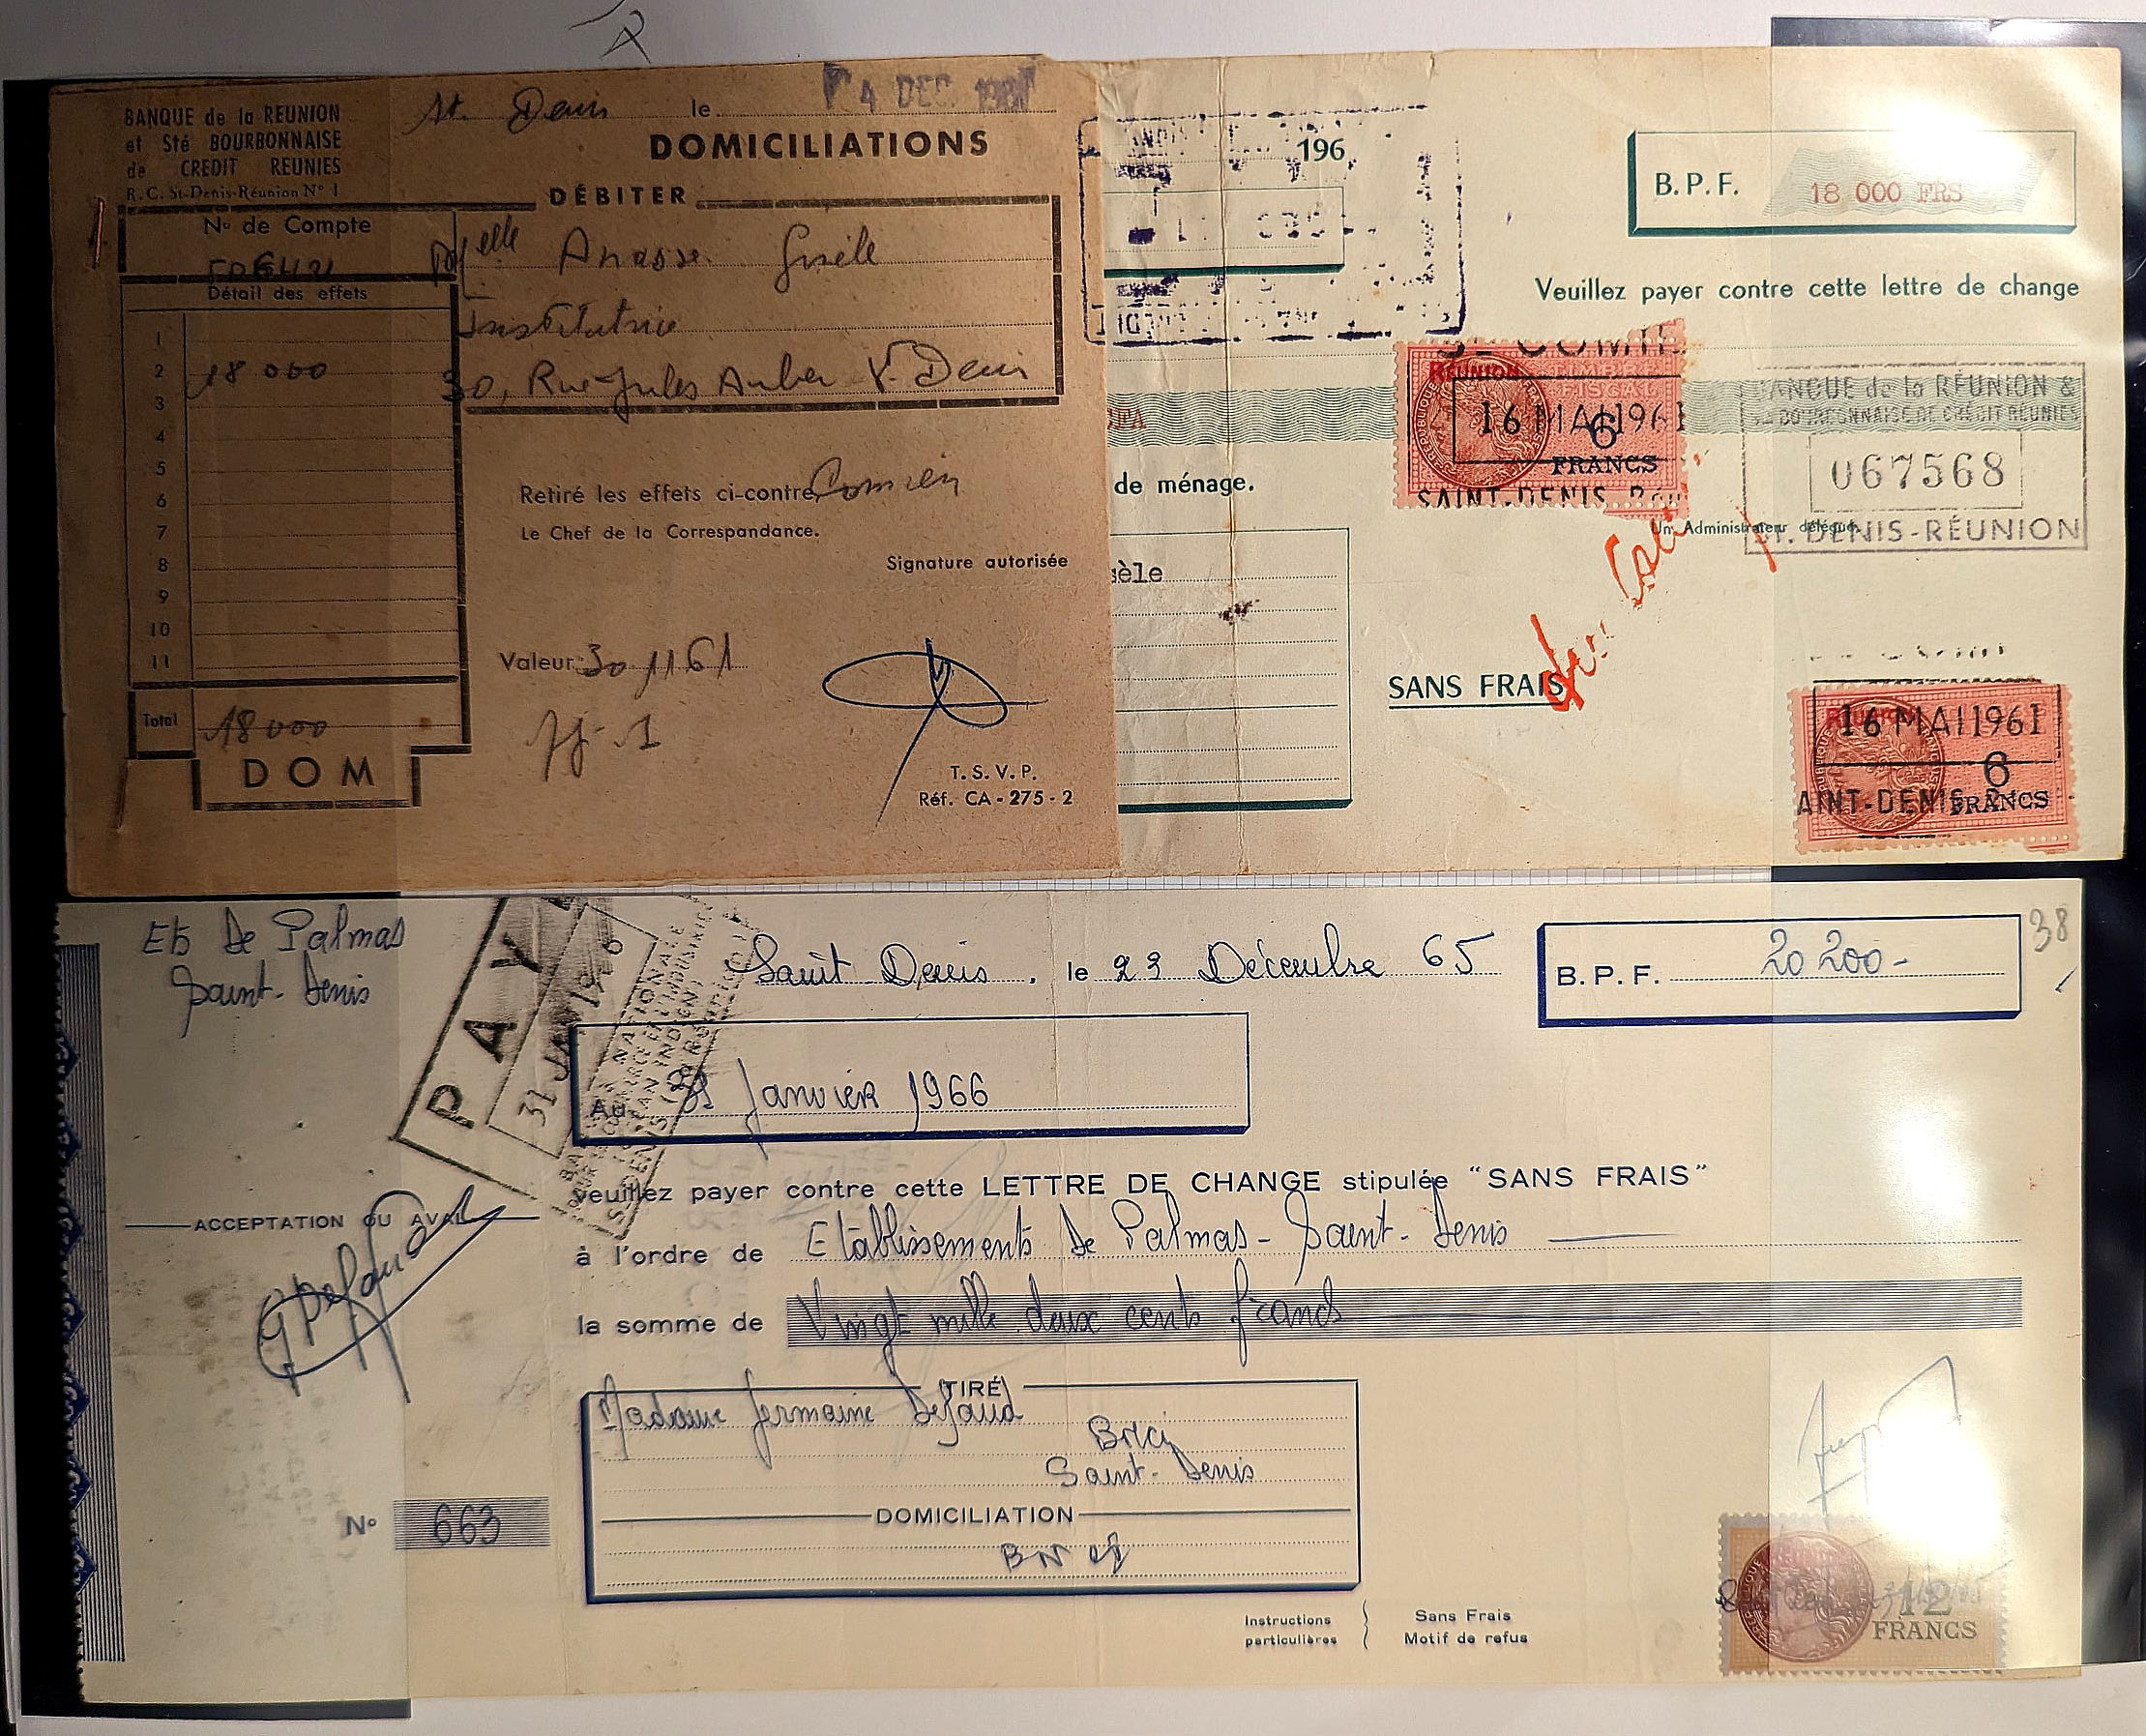 BANQUE de la REUNION
et Sté BOURBONNAISE
de CREDIT REUNIES
R.C. St-Denis-Réunion N° 1
St. Denis le 4 DEC. 1961
DOMICILIATIONS
DÉBITER
N° de Compte
Détail des effets
Melle Anasse Gisèle
Institutrice
30, Rue Jules Auber St. Denis
1
2 18 000
3
4
5
6
7
8
9
10
11
Total 18 000
DOM
Retiré les effets ci-contre
Le Chef de la Correspondance.
Signature autorisée
Valeur: 30/11 61
T. S. V. P.
Réf. CA - 275 - 2
196
B. P. F. 18 000 FRS
Veuillez payer contre cette lettre de change
RÉUNION
16 MAI 1961
6
FRANCS
SAINT-DENIS
BANQUE de la RÉUNION &
Sté BOURBONNAISE DE CRÉDIT RÉUNIES
067568
ST. DENIS-RÉUNION
de ménage.
Un Administrateur délégué,
sèle
SANS FRAIS
RÉUNION
16 MAI 1961
6
AINT-DENIS
FRANCS
Ets De Palmas
Saint-Denis
PAYÉ
31 JAN 1966
Saint Denis, le 23 Décembre 65
B. P. F. 20 200-
38
Au 31 Janvier 1966
Veuillez payer contre cette LETTRE DE CHANGE stipulée "SANS FRAIS"
ACCEPTATION OU AVAL
à l'ordre de Etablissements De Palmas - Saint-Denis
la somme de Vingt mille deux cents francs
TIRÉ
Madame Germaine Defaud
BNCI
Saint-Denis
DOMICILIATION
N° 663
Instructions particulières
Sans Frais
Motif de refus
12
FRANCS